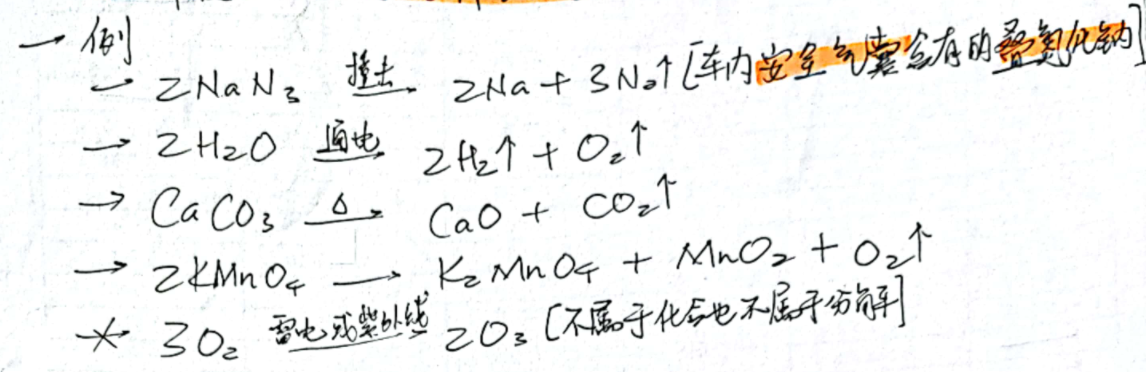 → 例
→ 2NaN₃ 撞击→ 2Na + 3N₂↑ [车内安全气囊含有的叠氮化钠]
→ 2H₂O 通电→ 2H₂↑ + O₂↑
→ CaCO₃ △→ CaO + CO₂↑
→ 2KMnO₄ → K₂MnO₄ + MnO₂ + O₂↑
* 3O₂ 雷电或紫外线→ 2O₃ [不属于化合也不属于分解]